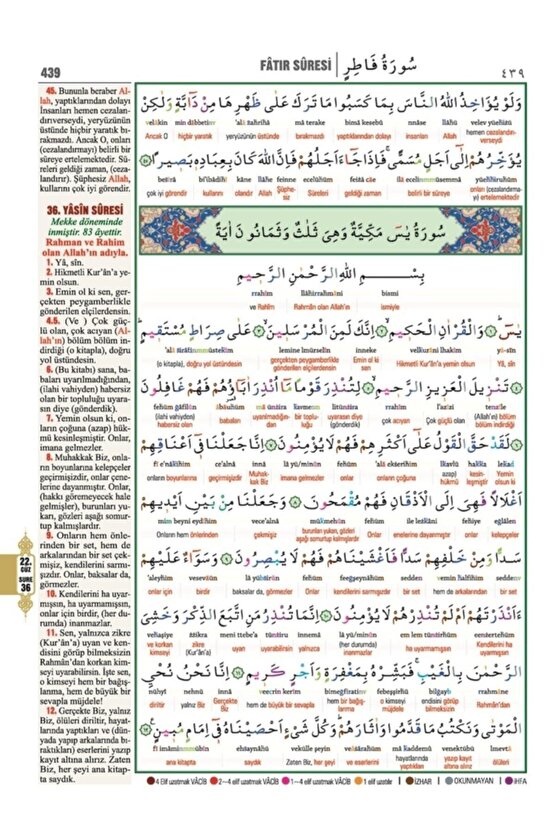 439
FÂTIR SÛRESİ
سُورَةُ فَاطِرٍ
٤٣٩
45. Bununla beraber Al-
lah, yaptıklarından dolayı
İnsanları hemen cezalan-
dırıverseydi, yeryüzünün
üstünde hiçbir yaratık bı-
rakmazdı. Ancak O, onları
(cezalandırmayı) belirli bir
süreye ertelemektedir. Sü-
releri geldiği zaman, (ceza-
landırır). Şüphesiz Allah,
kullarını çok iyi görendir.
36. YÂSİN SÛRESİ
Mekke döneminde
inmiştir. 83 âyettir.
Rahman ve Rahim
olan Allah'ın adıyla.
1. Yâ, sîn.
2. Hikmetli Kur'ân'a ye-
min olsun.
3. Emin ol ki sen, ger-
çekten peygamberlikle
gönderilen elçilerdensin.
4.5. (Ve ) Çok güç-
lü olan, çok acıyan (Al-
lah'ın) bölüm bölüm in-
dirdiği (o kitapla), doğru
yol üstündesin.
6. (Bu kitabı) sana, ba-
baları uyarılmadığından,
(ilahi vahiyden) habersiz
olan bir topluluğu uyara-
sın diye (gönderdik).
7. Yemin olsun ki, on-
ların çoğuna (azap) hük-
mü kesinleşmiştir. Onlar,
imana gelmezler.
8. Muhakkak Biz, onla-
rın boyunlarına kelepçeler
geçirmişizdir, onlar çene-
lerine dayanmıştır. Onlar,
(hakkı göremeyecek hale
gelmişler), burunları yu-
karı, gözleri aşağı somur-
tup kalmışlardır.
9. Onların hem önle-
rinden bir set, hem de
arkalarından bir set çek-
mişiz, kendilerini sarmı-
şızdır. Onlar, baksalar da,
görmezler.
10. Kendilerini ha uyar-
mışsın, ha uyarmamışsın,
onlar için birdir, (her du-
rumda) inanmazlar.
11. Sen, yalnızca zikre
(Kur'ân'a) uyan ve ken-
disini görüp bilmeksizin
Rahmân'dan korkan kim-
seyi uyarabilirsin. İşte sen,
o kimseyi hem bir bağış-
lanma, hem de büyük bir
sevapla müjdele!
12. Gerçekte Biz, yalnız
Biz, ölüleri diriltir, hayat-
larında yaptıkları ve (dün-
yada yapıp arkalarında bı-
raktıkları) eserlerini yazıp
kayıt altına alırız. Zaten
Biz, her şeyi ana kitap-
ta saydık.
22.
CÜZ
SURE
36
وَلَوْ يُؤَاخِذُ اللّٰهُ النَّاسَ بِمَا كَسَبُوا مَا تَرَكَ عَلٰى ظَهْرِهَا مِنْ دَٓابَّةٍ وَلٰكِنْ
velâkin min dâbbetinv 'alâ zahrihâ mâ terake bimâ kesebû nnâse llâhü velev yüéhizü
Ancak O hiçbir yaratık yeryüzünün üstünde bırakmazdı yaptıklarından dolayı insanları Allah hemen cezalandırı-
verseydi
يُؤَخِّرُهُمْ اِلٰٓى اَجَلٍ مُسَمًّىۚ فَاِذَا جَٓاءَ اَجَلُهُمْ فَاِنَّ اللّٰهَ كَانَ بِعِبَادِه۪ بَص۪يرًا ﴿٤٥﴾
besîrâ bi'ibâdihî kâne llâhe feinne ecelühüm feizâ câe ilâ ecelimmüsemmâ yüehhiruhüm
çok iyi görendir kullarını olandır Allah Şüphe-
siz Süreleri geldiği zaman belirli bir süreye onları (cezalandırma-
yı) ertelemektedir
سُورَةُ يٰسٓ مَكِّيَّةٌ وَهِيَ ثَلٰثٌ وَثَمَانُونَ اٰيَةً
بِسْــــــمِ اللّٰهِ الرَّحْمٰنِ الرَّح۪يمِ
rrahîm llâhirrahmâni bismi
ve Rahîm Rahmân olan Allah'ın ismiyle
يٰسٓ ﴿١﴾ وَالْقُرْاٰنِ الْحَك۪يمِ ﴿٢﴾ اِنَّكَ لَمِنَ الْمُرْسَل۪ينَ ﴿٣﴾ عَلٰى صِرَاطٍ مُسْتَق۪يمٍ ﴿٤﴾
'alâ sirâtinmmüstekîm lemine lmürselîn inneke velkurâni lhakîm yâ-sîn
(o kitapla), doğru yol üstündesin gerçekten peygamberlikle
gönderilen elçilerdensin Emin ol
ki sen Hikmetli Kur'ân'a yemin olsun Yâ, sîn
تَنْز۪يلَ الْعَز۪يزِ الرَّح۪يمِ ﴿٥﴾ لِتُنْذِرَ قَوْمًا مَٓا اُنْذِرَ اٰبَٓاؤُ۬هُمْ فَهُمْ غَافِلُونَ
fehüm ğâfilûn âbâuhüm mâ ünzira kavmenn litünzira rrahîm l'azîzi tenzîle
(ilahi vahiyden)
habersiz olan babaları uyarılmadığın-
dan bir toplu-
luğu uyarasın diye
(gönderdik) çok acıyan Çok güçlü olan (Allah'ın) bölüm
bölüm indirdiği
﴿٦﴾ لَقَدْ حَقَّ الْقَوْلُ عَلٰٓى اَكْثَرِهِمْ فَهُمْ لَا يُؤْمِنُونَ ﴿٧﴾ اِنَّا جَعَلْنَا ف۪ٓي اَعْنَاقِهِمْ
fî e'nâkihim ce'alnâ innâ lâ yü/minûn fehüm 'alâ ekserihim lkavlü hakka lekad
onların boyunlarına geçirmişizdir Muhak-
kak Biz imana gelmezler onlar onların çoğuna (azap)
hükmü kesin-
leşmiştir Yemin
olsun ki
اَغْلَالًا فَهِيَ اِلَى الْاَذْقَانِ فَهُمْ مُقْمَحُونَ ﴿٨﴾ وَجَعَلْنَا مِنْ بَيْنِ اَيْد۪يهِمْ
mim beyni eydîhim vece'alnâ mükmehûn fehüm ile lezkâni fehiye eğlâlen
Onların hem önlerinden çekmişiz burunları yukarı, gözleri
aşağı somurtup kalmışlardır Onlar enelerine dayanmıştır onlar kelepçeler
سَدًّا وَمِنْ خَلْفِهِمْ سَدًّا فَاَغْشَيْنَاهُمْ فَهُمْ لَا يُبْصِرُونَ ﴿٩﴾ وَسَوَٓاءٌ عَلَيْهِمْ
'aleyhim vesevâün lâ yübsirûn fehüm feeğşeynâhüm sedden vemin halfihim sedden
onlar için birdir baksalar da, görmezler Onlar kendilerini sarmışızdır bir set hem de arkalarından bir set
ءَاَنْذَرْتَهُمْ اَمْ لَمْ تُنْذِرْهُمْ لَا يُؤْمِنُونَ ﴿١٠﴾ اِنَّمَا تُنْذِرُ مَنِ اتَّبَعَ الذِّكْرَ وَخَشِيَ
vehaşiye zzikra meni ttebe'a tünziru innemâ lâ yü/minûn em lem tünzirhüm eenzertehüm
ve korkan
kimseyi zikre
(Kur'ân'a) uyan uyarabilirsin yalnızca (her durumda)
inanmazlar ha uyarmamışsın Kendilerini ha
uyarmışsın
الرَّحْمٰنَ بِالْغَيْبِۚ فَبَشِّرْهُ بِمَغْفِرَةٍ وَاَجْرٍ كَر۪يمٍ ﴿١١﴾ اِنَّا نَحْنُ نُحْيِ
nühyi nehnü innâ veecrin kerîm bimeğfiratinv febeşşirhü bilğaybi rrahmâne
diriltir yalnız Biz Gerçekte Biz hem de büyük bir sevapla hem bir bağış-
lanma o kimseyi
müjdele! endisini görüp
bilmeksizin Rahmân'dan
الْمَوْتٰى وَنَكْتُبُ مَا قَدَّمُوا وَاٰثَارَهُمْۜ وَكُلَّ شَيْءٍ اَحْصَيْنَاهُ ف۪ٓي اِمَامٍ مُب۪ينٍ ﴿١٢﴾
fî imâmimmübîn ehsaynâhü vekülle şeyin veâsârahüm mâ kaddemû venektübü lmevtâ
ana kitapta saydık Zaten Biz, her şeyi ve eserlerini hayatlarında
yaptıkları yazıp kayıt
altına alırız ölüleri
4 Elif uzatmak VÂCİB 2~4 elif uzatmak VÂCİB 1~4 elif uzatmak VÂCİB 1 elif uzatılır İZHAR OKUNMAYAN İHFA